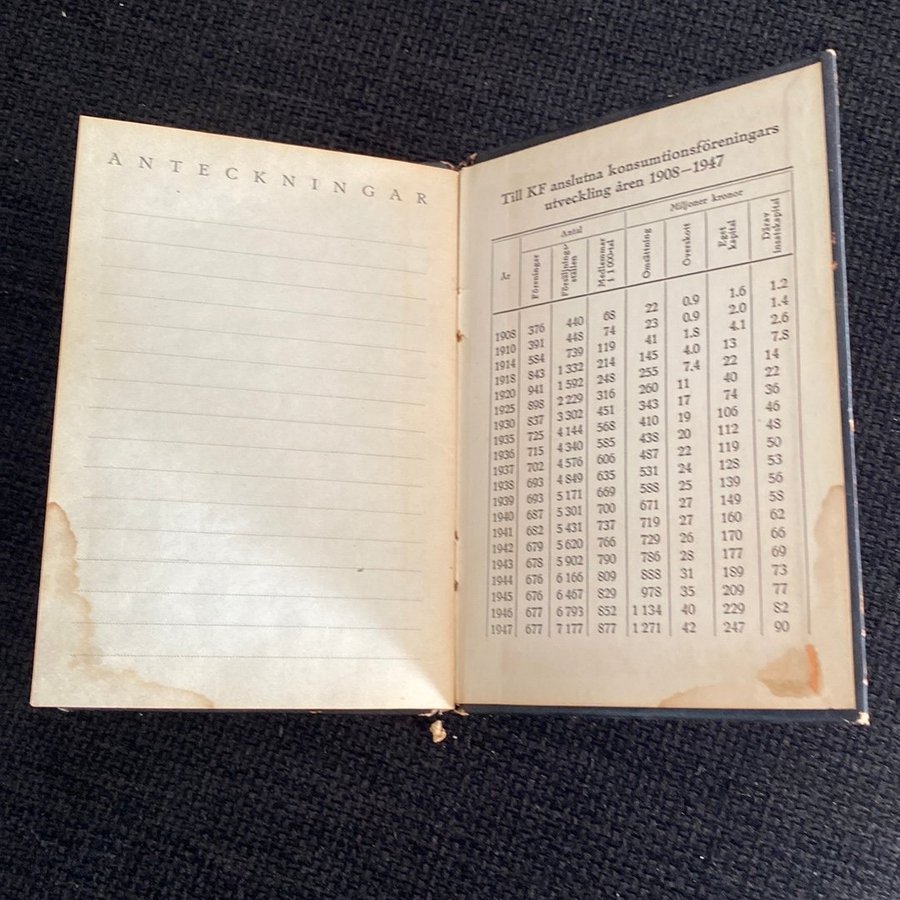 ANTECKNINGAR
Till KF anslutna konsumtionsföreningars
utveckling åren 1908—1947
Antal
Miljoner kronor
År
Föreningar
Försäljnings-
ställen
Medlemmar
i 1 000-tal
Omsättning
Överskott
Eget
kapital
Därav
insatskapital
1908 376 440 68 22 0.9 1.6 1.2
1910 391 448 74 23 0.9 2.0 1.4
1914 584 739 119 41 1.8 4.1 2.6
1918 843 1 332 214 145 4.0 13 7.8
1920 941 1 592 248 255 7.4 22 14
1925 898 2 229 316 260 11 40 22
1930 837 3 302 451 343 17 74 36
1935 725 4 144 568 410 19 106 46
1936 715 4 340 585 438 20 112 48
1937 702 4 576 606 487 22 119 50
1938 693 4 849 635 531 24 128 53
1939 693 5 171 669 588 25 139 56
1940 687 5 301 700 671 27 149 58
1941 682 5 431 737 719 27 160 62
1942 679 5 620 766 729 26 170 66
1943 678 5 902 790 786 28 177 69
1944 676 6 166 809 888 31 189 73
1945 676 6 467 829 978 35 209 77
1946 677 6 793 852 1 134 40 229 82
1947 677 7 177 877 1 271 42 247 90